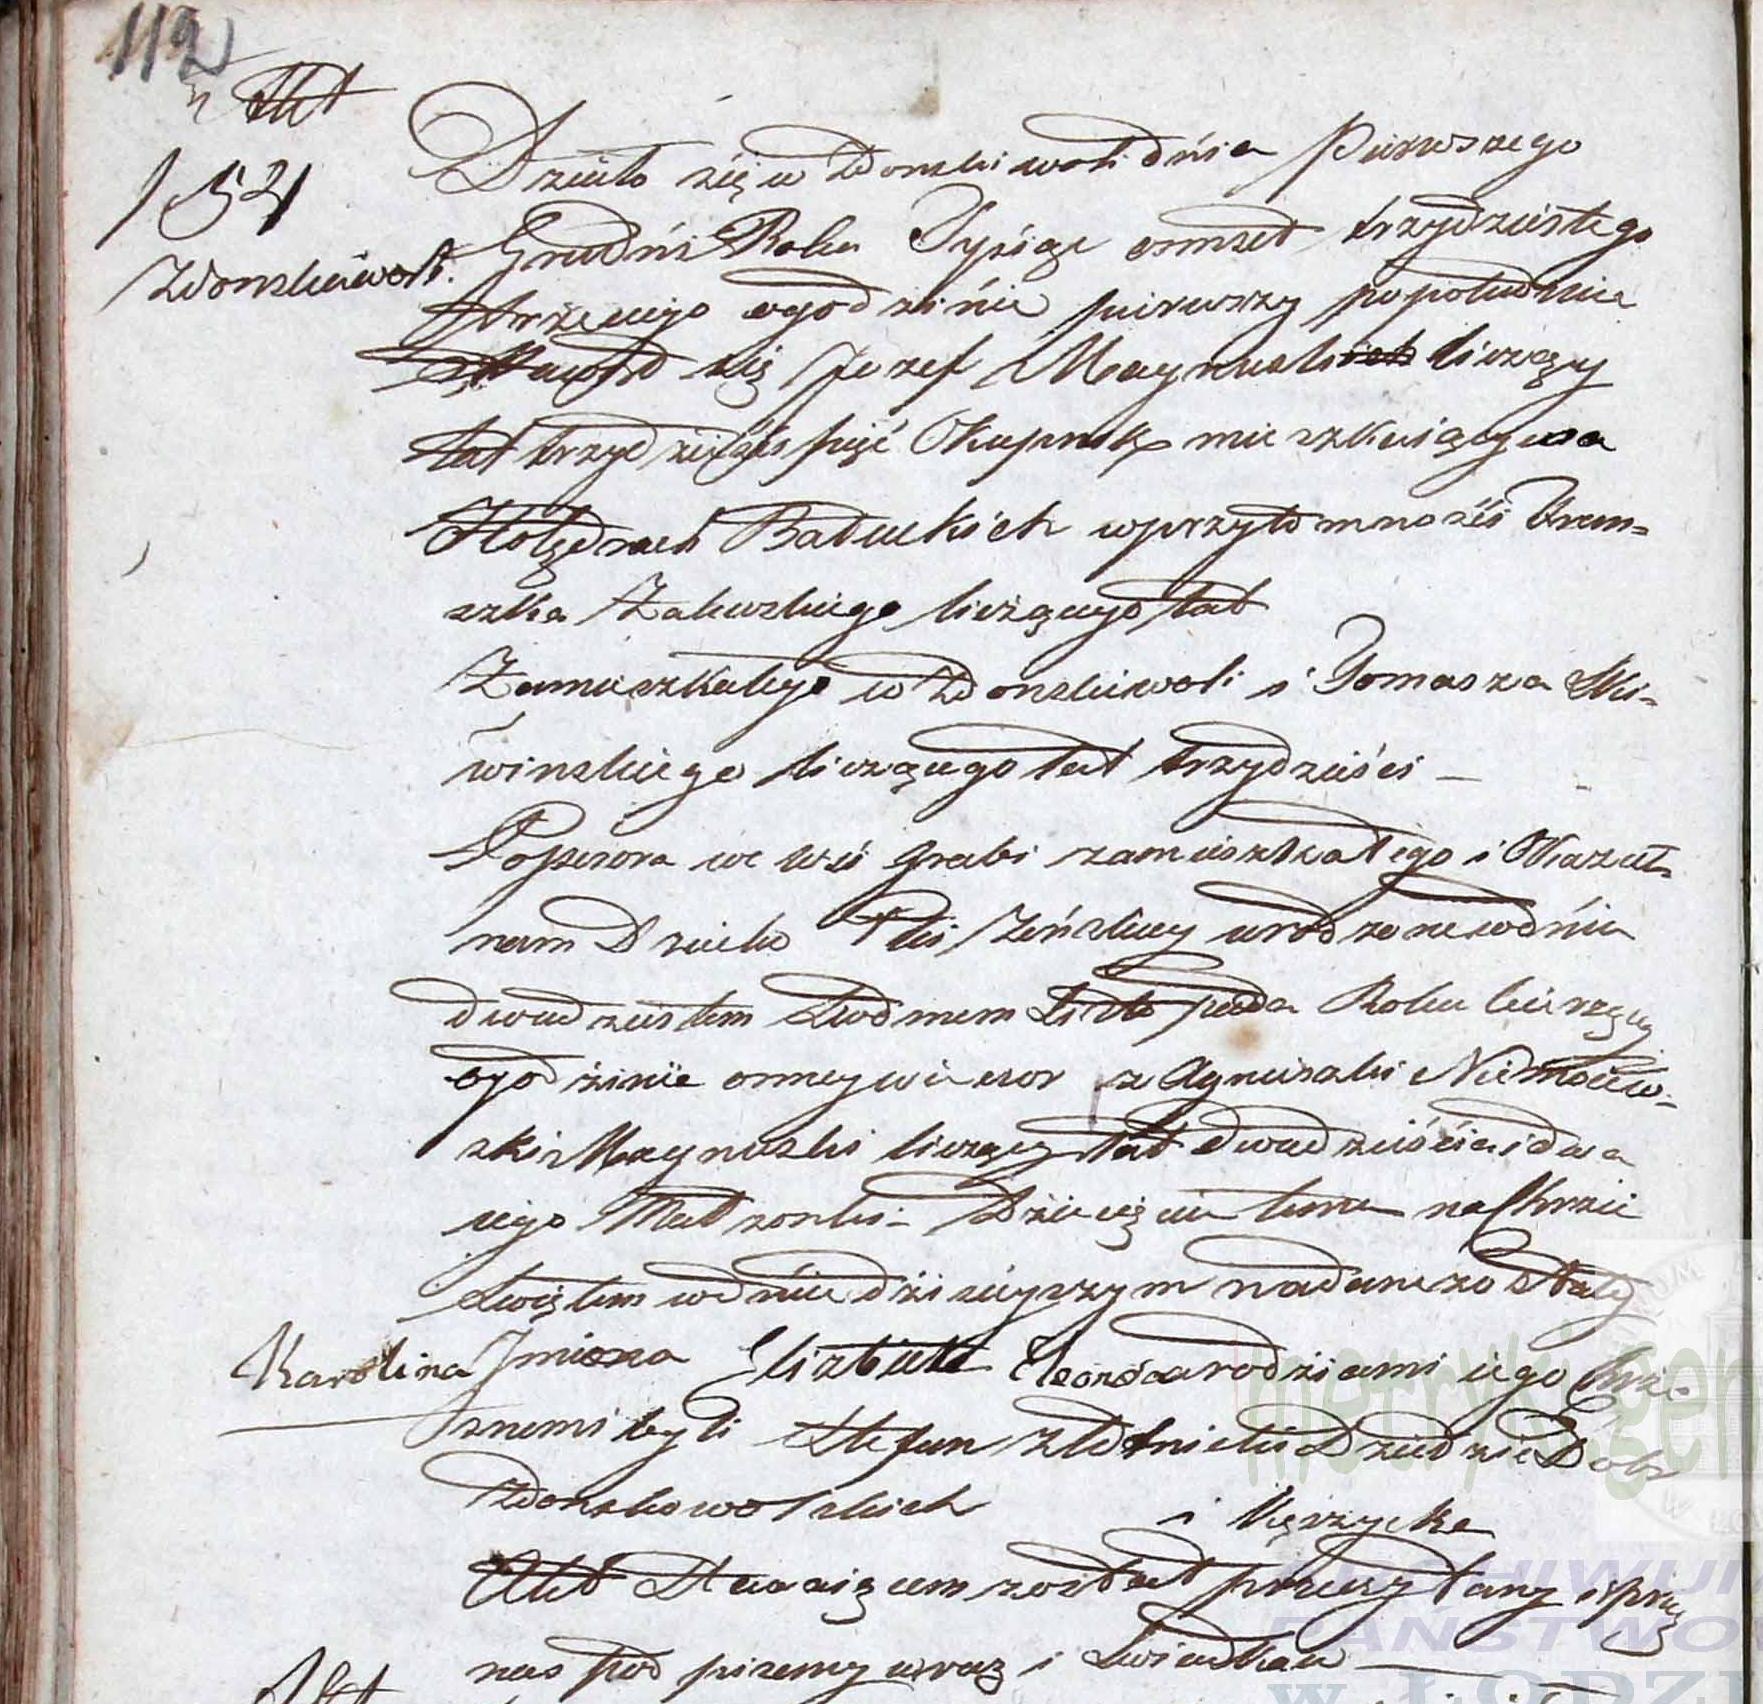 112
Akt
152
Zdonskiwoli.
Działo się w Zdonski woli dnia Pierwszego
Grudni Roku Tysiąc osmset trzydziestego
trzeciego ogodzinie pierwszy popołudnie
Stawił się Jozef Magnuski liczący
lat trzydzieści pięć Okupnik mieszkaiący na
Holędrach Batuckich wprzytomności Fran=
szka Zalewskiego liczącego lat
Zamieszkałego w Zdonskiwoli i Tomasza
winskiego liczącego lat trzydzieści —
Possesora we wsi Grabi zamieszkałego i Okazał
nam Dziecko Płci Zeńskiey urodzone wdniu
dwudziestem Siodmem Listopada Roku bieżący
ogodzinie osmey wieczor z Agnieszki Niemoiew=
ski Magnuski liczący lat dwadzieścia i dwa
iego Małzonki - Dziecięciu temu na Chrzcie
Swiętem wdniu dzisieyszym nadane zostały
Karolina Imiona Elizbieta a rodzicami iego Chrze=
snemi byli Stefan Złotnicki Dziedzic Dobr
Zdonskowolskich i Kęszycka
Akt Stawaiącem został przeczytany i przez
nas pod pisemy wraz i Swiadkam —
Akt
metryki.gen
ARCHIWUM
PAŃSTWO
W ŁODZI